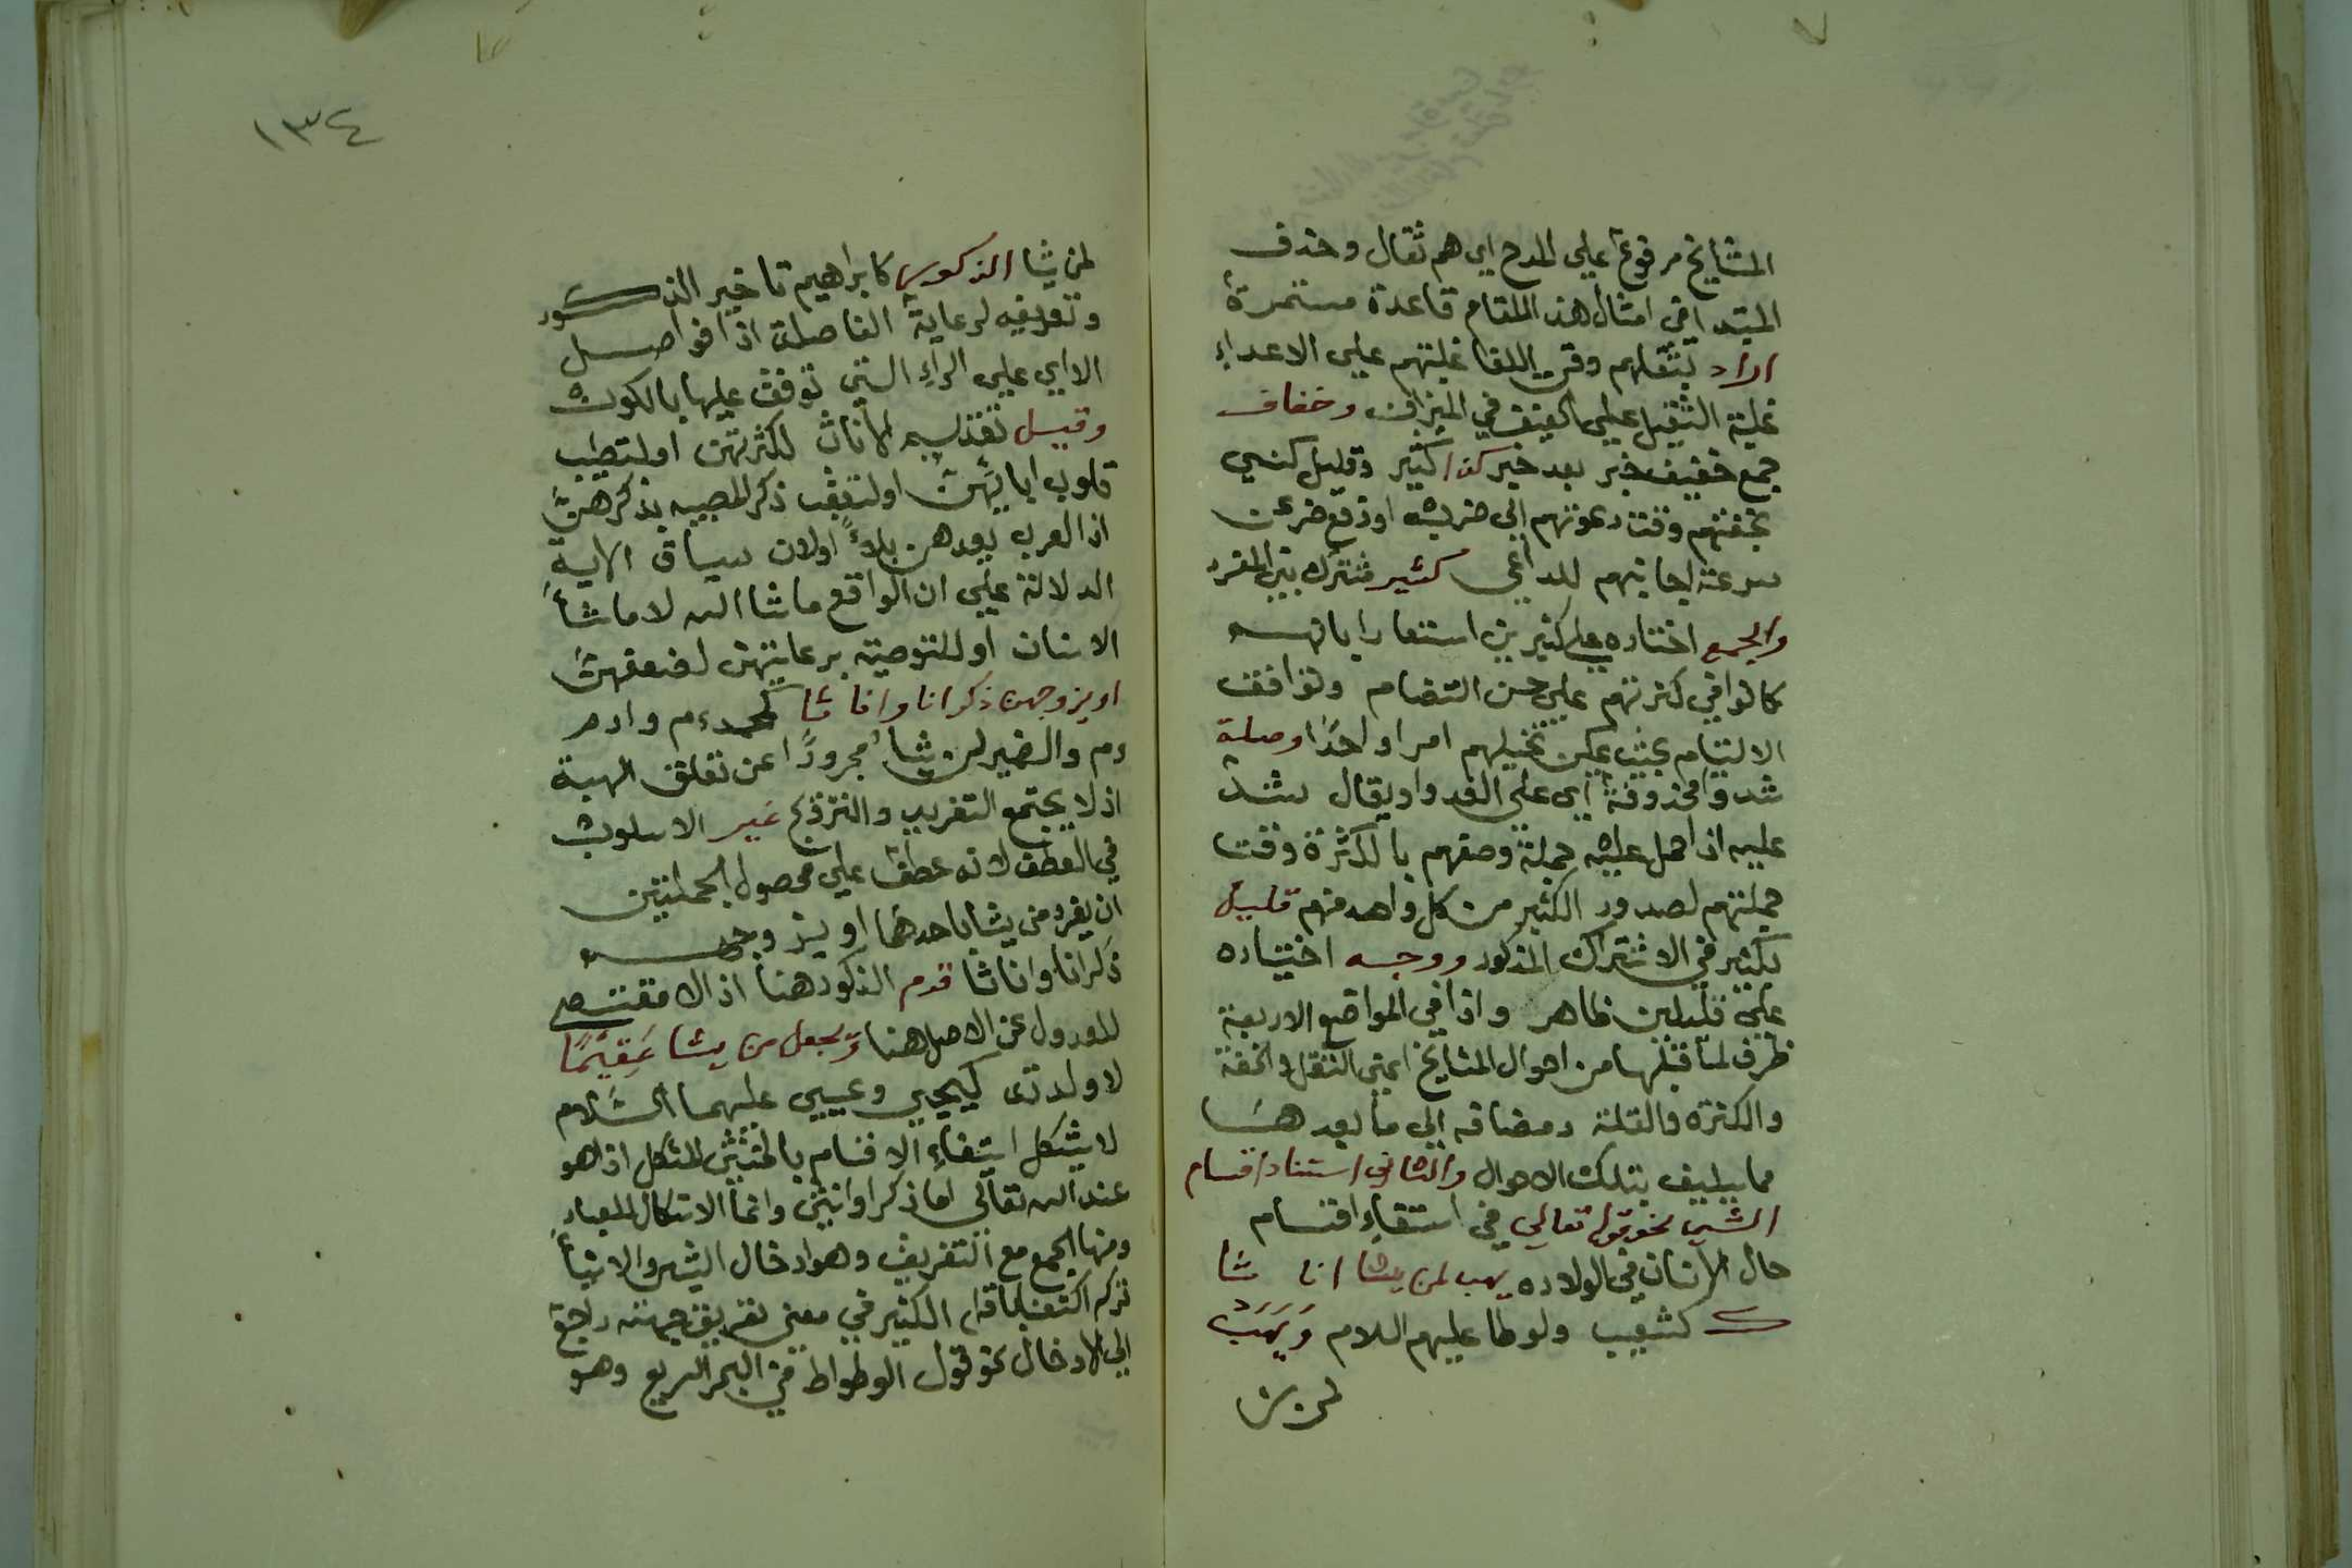 المشايخ مرفوعا علي المدح اي هم ثقال وحذف
المبتدا في امثال هذا المقام قاعدة مستمرة
اراد بثقلهم وقت اللقا غلبتهم علي الاعداء
غلبة الثقيل علي الخفيف في الميزان وخفاف
جمع خفيف خبر بعد خبر كذا كثير وقليل كني
بخفتهم وقت دعوتهم الي ضربة او دفع ضر عن
سرعة اجابتهم للداعي كثير مشترك بين المفرد
والجمع اختاره علي كثيرين اشعارا بانهم
كانوا في كثرتهم علي حسن التضام وتوافق
الالتيام بحيث يمكن تخيلهم امرا واحدًا وصلة
شدوا محذوفة اي علي العدو او يقال شد
عليه اذا حمل عليه حملة وصفهم بالكثرة وقت
حملتهم لصدور الكثير من كل واحد منهم قليل
ككثير في الاشتراك المذكور ووجه اختياره
علي قليلين ظاهر واذا في المواقع الاربعة
ظرف لما قبلها من احوال المشايخ اعني الثقل والخفة
والكثرة والقلة ومضافة الي ما بعدها
مما يليق بتلك الاحوال والثاني استيفاء اقسام
الشي نحو قوله تعالي في استيفاء اقسام
حال الانسان في الولاده يهب لمن يشا اناثا
كشعيب ولوطا عليهم السلام وَيَهَبُ
لمن يشا
١٣٤
لمن يشا الذكور كابراهيم تاخير الذكور
وتعريفه لرعاية الفاصلة اذ افواصل
الاي علي الراء التي توقف عليها بالكون
وقيل تقديم الاناث لكثرتهن او لتطييب
قلوب ابايهن او لتعقب ذكر المصيبه بذكرهن
اذ العرب يعدهن بلاءً او لان سياق الاية
الدلالة علي ان الواقع ما شا الله لا ما شا
الانسان او للتوصية برعايتهن لضعفهن
او يزوجهن ذكرانا واناثا كمحمد ءم وادم
ءم والضمير لمن يشا مجرودًا عن تعلق الهبة
اذ لا يجتمع التفريد والتزويج غير الاسلوب
في العطف لانه عطف علي محصول الجملتين
ان يفرد من يشا باحدهما او يزوجه
ذكرانا واناثا قدم الذكور هنا اذ لا مقتضي
للعدول عن الاصل هنا وَيجعل من يشا عَقِيمًا
لا ولد له كيحيي وعيسي عليهما السَّلام
لا يشكل استيفاء الاقسام بالخنثي المشكل اذ هو
عند الله تعالي اما ذكر او انثي وانما الاشكال للعباد
ومنها الجمع مع التفريق وهو ادخال الشيئين
تركه اكتفا الكثير في معني تفريق جهته راجع
الي الادخال نحو قول الوطواط في البحر السريع وهو